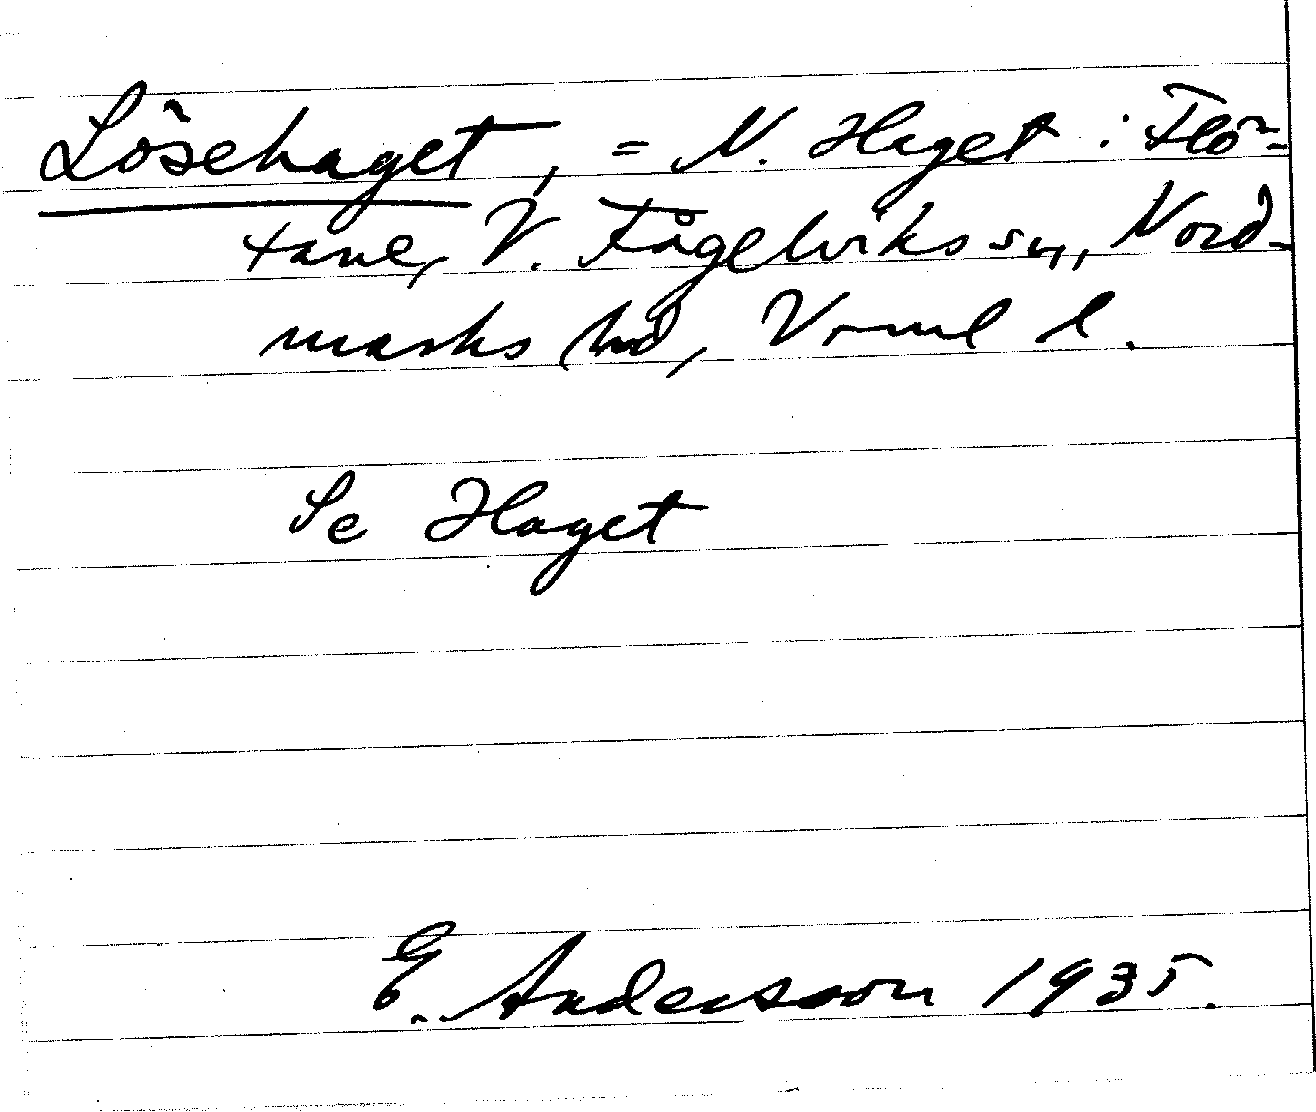 Lösehaget, = N. Haget i Flö-
tane, V. Fågelviks sn, Nord-
marks hd, Vrml l.
Se Haget
E. Andersson 1935.